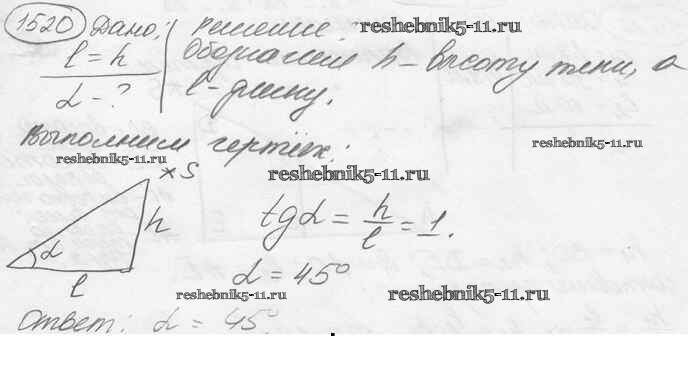 1520 Дано: решение. reshebnik5-11.ru
l = h Обозначим h – высоту тени, а
α - ? l - длину.
Выполним чертёж: reshebnik5-11.ru
reshebnik5-11.ru reshebnik5-11.ru
*S
h
α
l
tgα = h/l = 1.
α = 45°
reshebnik5-11.ru reshebnik5-11.ru
Ответ: α = 45°